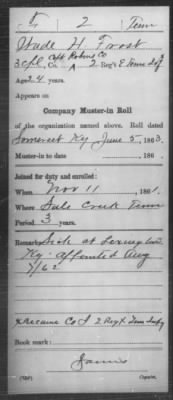 F 2 Tenn
Wade H. Frost
3 Cpl Capt Robins Co
Co. A 2 Reg't E Tenn Inf
Age 24 years.
Appears on
Company Muster-in Roll
of the organization named above. Roll dated
Somerset Ky June 5, 1863.
Muster-in to date 186 .
Joined for duty and enrolled:
When Nov 11, 1861.
Where Sale Creek Tenn
Period 3 years.
Remarks: Sick at Lexington
Ky. appointed Aug
7/62
x Became Co I 2 Regt Tenn Infy
Book mark:
Copyist.